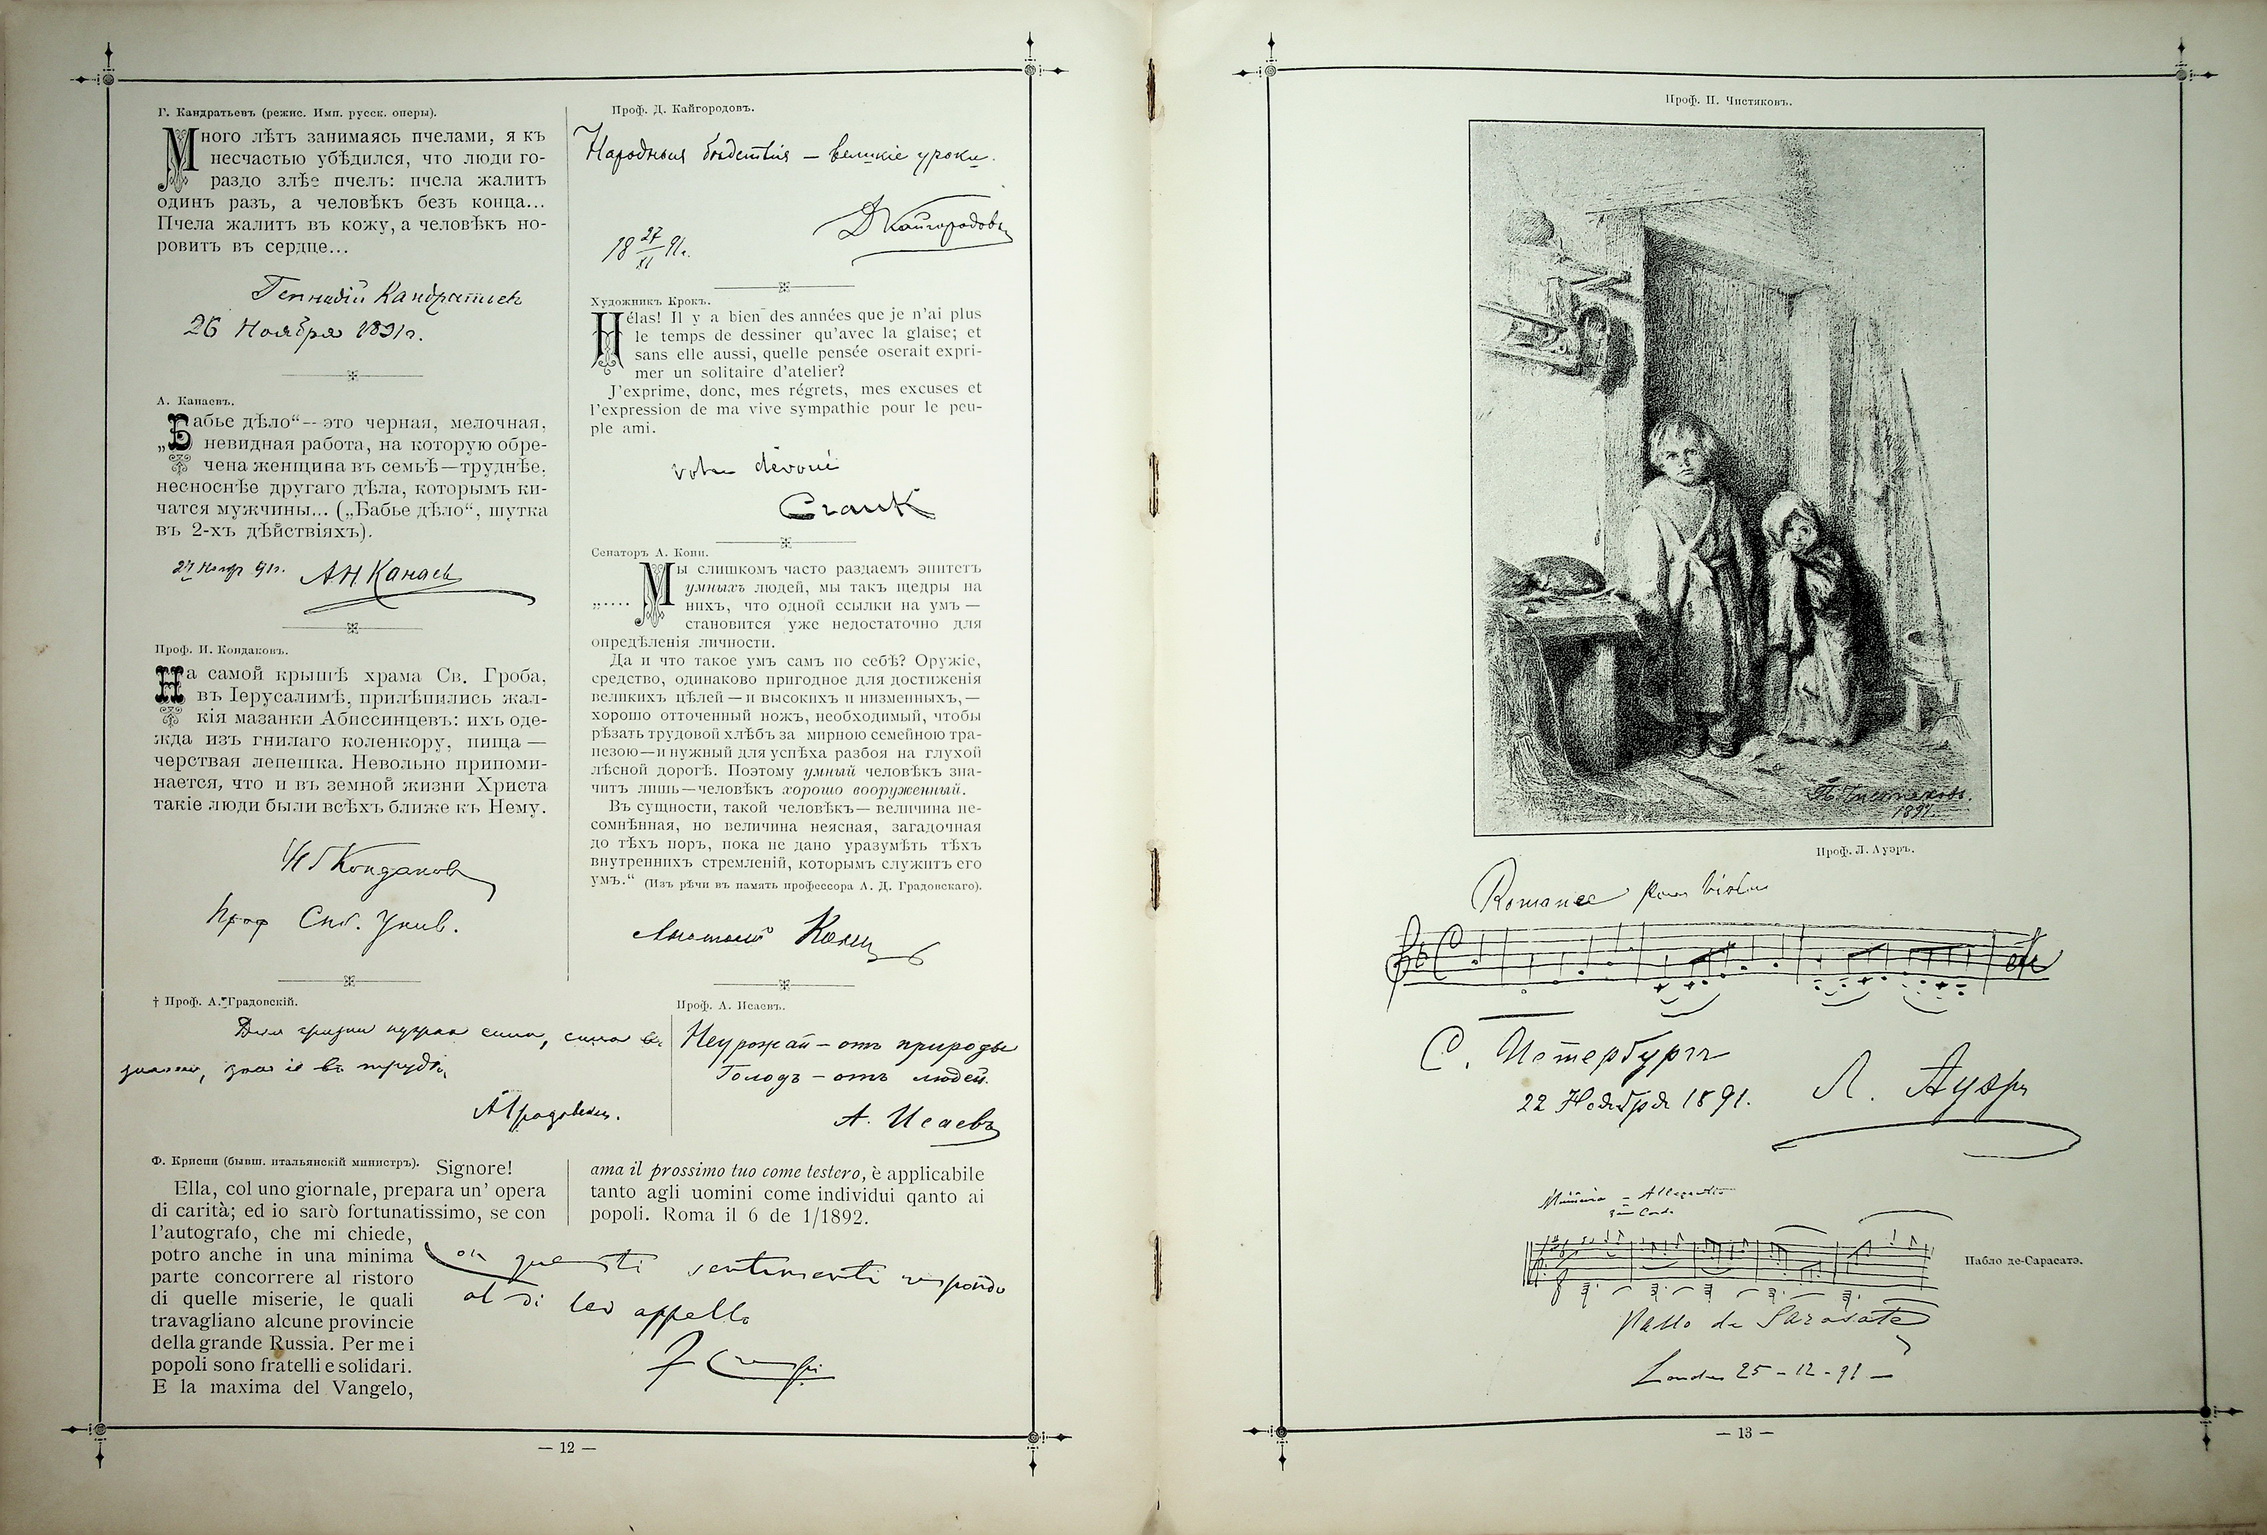 Г. Кандратьевъ (режис. Имп. русск. оперы).
Много лѣтъ занимаясь пчелами, я къ
несчастью убѣдился, что люди го-
раздо злѣе пчелъ: пчела жалитъ
одинъ разъ, а человѣкъ безъ конца...
Пчела жалитъ въ кожу, а человѣкъ но-
ровитъ въ сердце...
Геннадій Кандратьев
26 Ноября 1891г.
А. Канаевъ.
„Бабье дѣло“ — это черная, мелочная,
невидная работа, на которую обре-
чена женщина въ семьѣ—труднѣе,
несноснѣе другаго дѣла, которымъ ки-
чатся мужчины... („Бабье дѣло“, шутка
въ 2-хъ дѣйствіяхъ).
27 Нояб 91г. А Н Канаев
Проф. Н. Кондаковъ.
На самой крышѣ храма Св. Гроба,
въ Іерусалимѣ, прилѣпились жал-
кія мазанки Абиссинцевъ: ихъ оде-
жда изъ гнилаго коленкору, пища —
черствая лепешка. Невольно припоми-
нается, что и въ земной жизни Христа
такіе люди были всѣхъ ближе къ Нему.
Кондаков
проф Спб. Унив.
† Проф. А. Градовскій.
Для жизни нужна сила, сила в
знаніи, знаніе в трудѣ.
А Градовскій.
Проф. Д. Кайгородовъ.
Народныя бѣдствія — великіе уроки.
Д Кайгородовъ
18 27/XI 91г.
Художникъ Крокъ.
Hélas! Il y a bien des années que je n'ai plus
le temps de dessiner qu'avec la glaise; et
sans elle aussi, quelle pensée oserait expri-
mer un solitaire d'atelier?
J'exprime, donc, mes régrets, mes excuses et
l'expression de ma vive sympathie pour le peu-
ple ami.
votre dévoué
Сенаторъ А. Кони.
„.... Мы слишкомъ часто раздаемъ эпитетъ
умныхъ людей, мы такъ щедры на
нихъ, что одной ссылки на умъ —
становится уже недостаточно для
опредѣленія личности.
Да и что такое умъ самъ по себѣ? Оружіе,
средство, одинаково пригодное для достиженія
великихъ цѣлей — и высокихъ и низменныхъ, —
хорошо отточенный ножъ, необходимый, чтобы
рѣзать трудовой хлѣбъ за мирною семейною тра-
пезою—и нужный для успѣха разбоя на глухой
лѣсной дорогѣ. Поэтому умный человѣкъ зна-
читъ лишь—человѣкъ хорошо вооруженный.
Въ сущности, такой человѣкъ — величина не-
сомнѣнная, но величина неясная, загадочная
до тѣхъ поръ, пока не дано уразумѣть тѣхъ
внутреннихъ стремленій, которымъ служитъ его
умъ.“ (Изъ рѣчи въ память профессора А. Д. Градовскаго).
Анатолій Кони
Проф. А. Исаевъ.
Неурожай — отъ природы
Голодъ — отъ людей.
А. Исаевъ
Ф. Криспи (бывш. итальянскій министръ). Signore!
Ella, col uno giornale, prepara un' opera
di carità; ed io sarò fortunatissimo, se con
l'autografo, che mi chiede,
potro anche in una minima
parte concorrere al ristoro
di quelle miserie, le quali
travagliano alcune provincie
della grande Russia. Per me i
popoli sono fratelli e solidari.
E la maxima del Vangelo,
ama il prossimo tuo come testero, è applicabile
tanto agli uomini come individui qanto ai
popoli. Roma il 6 de 1/1892.
Con questi sentimenti rispondo
al di lei appello
F Crispi
— 12 —
Проф. П. Чистяковъ.
П. Чистяковъ.
189
Проф. Л. Ауэръ.
Romance pour Violon
etc
С. Петербургъ
22 Ноября 1891.
Л. Ауэръ
Allegretto
Corda
Пабло де-Сарасатэ.
Pablo de Sarasate
Londres 25 - 12 - 91 —
— 13 —